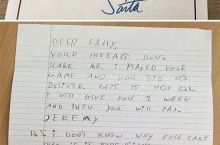 Santa
DEER FATTY,
YOUR THREATS DON'T
SCARE ME. I PLAYED YOUR
GAME AND YOU DID NOT
DELIVER. THIS IS NOT OK.
I WILL GIVE YOU 1 WEEK
AND THEN YOU WILL PAY.
JEREMY
P.S I DON'T KNOW WHY YOU CARE